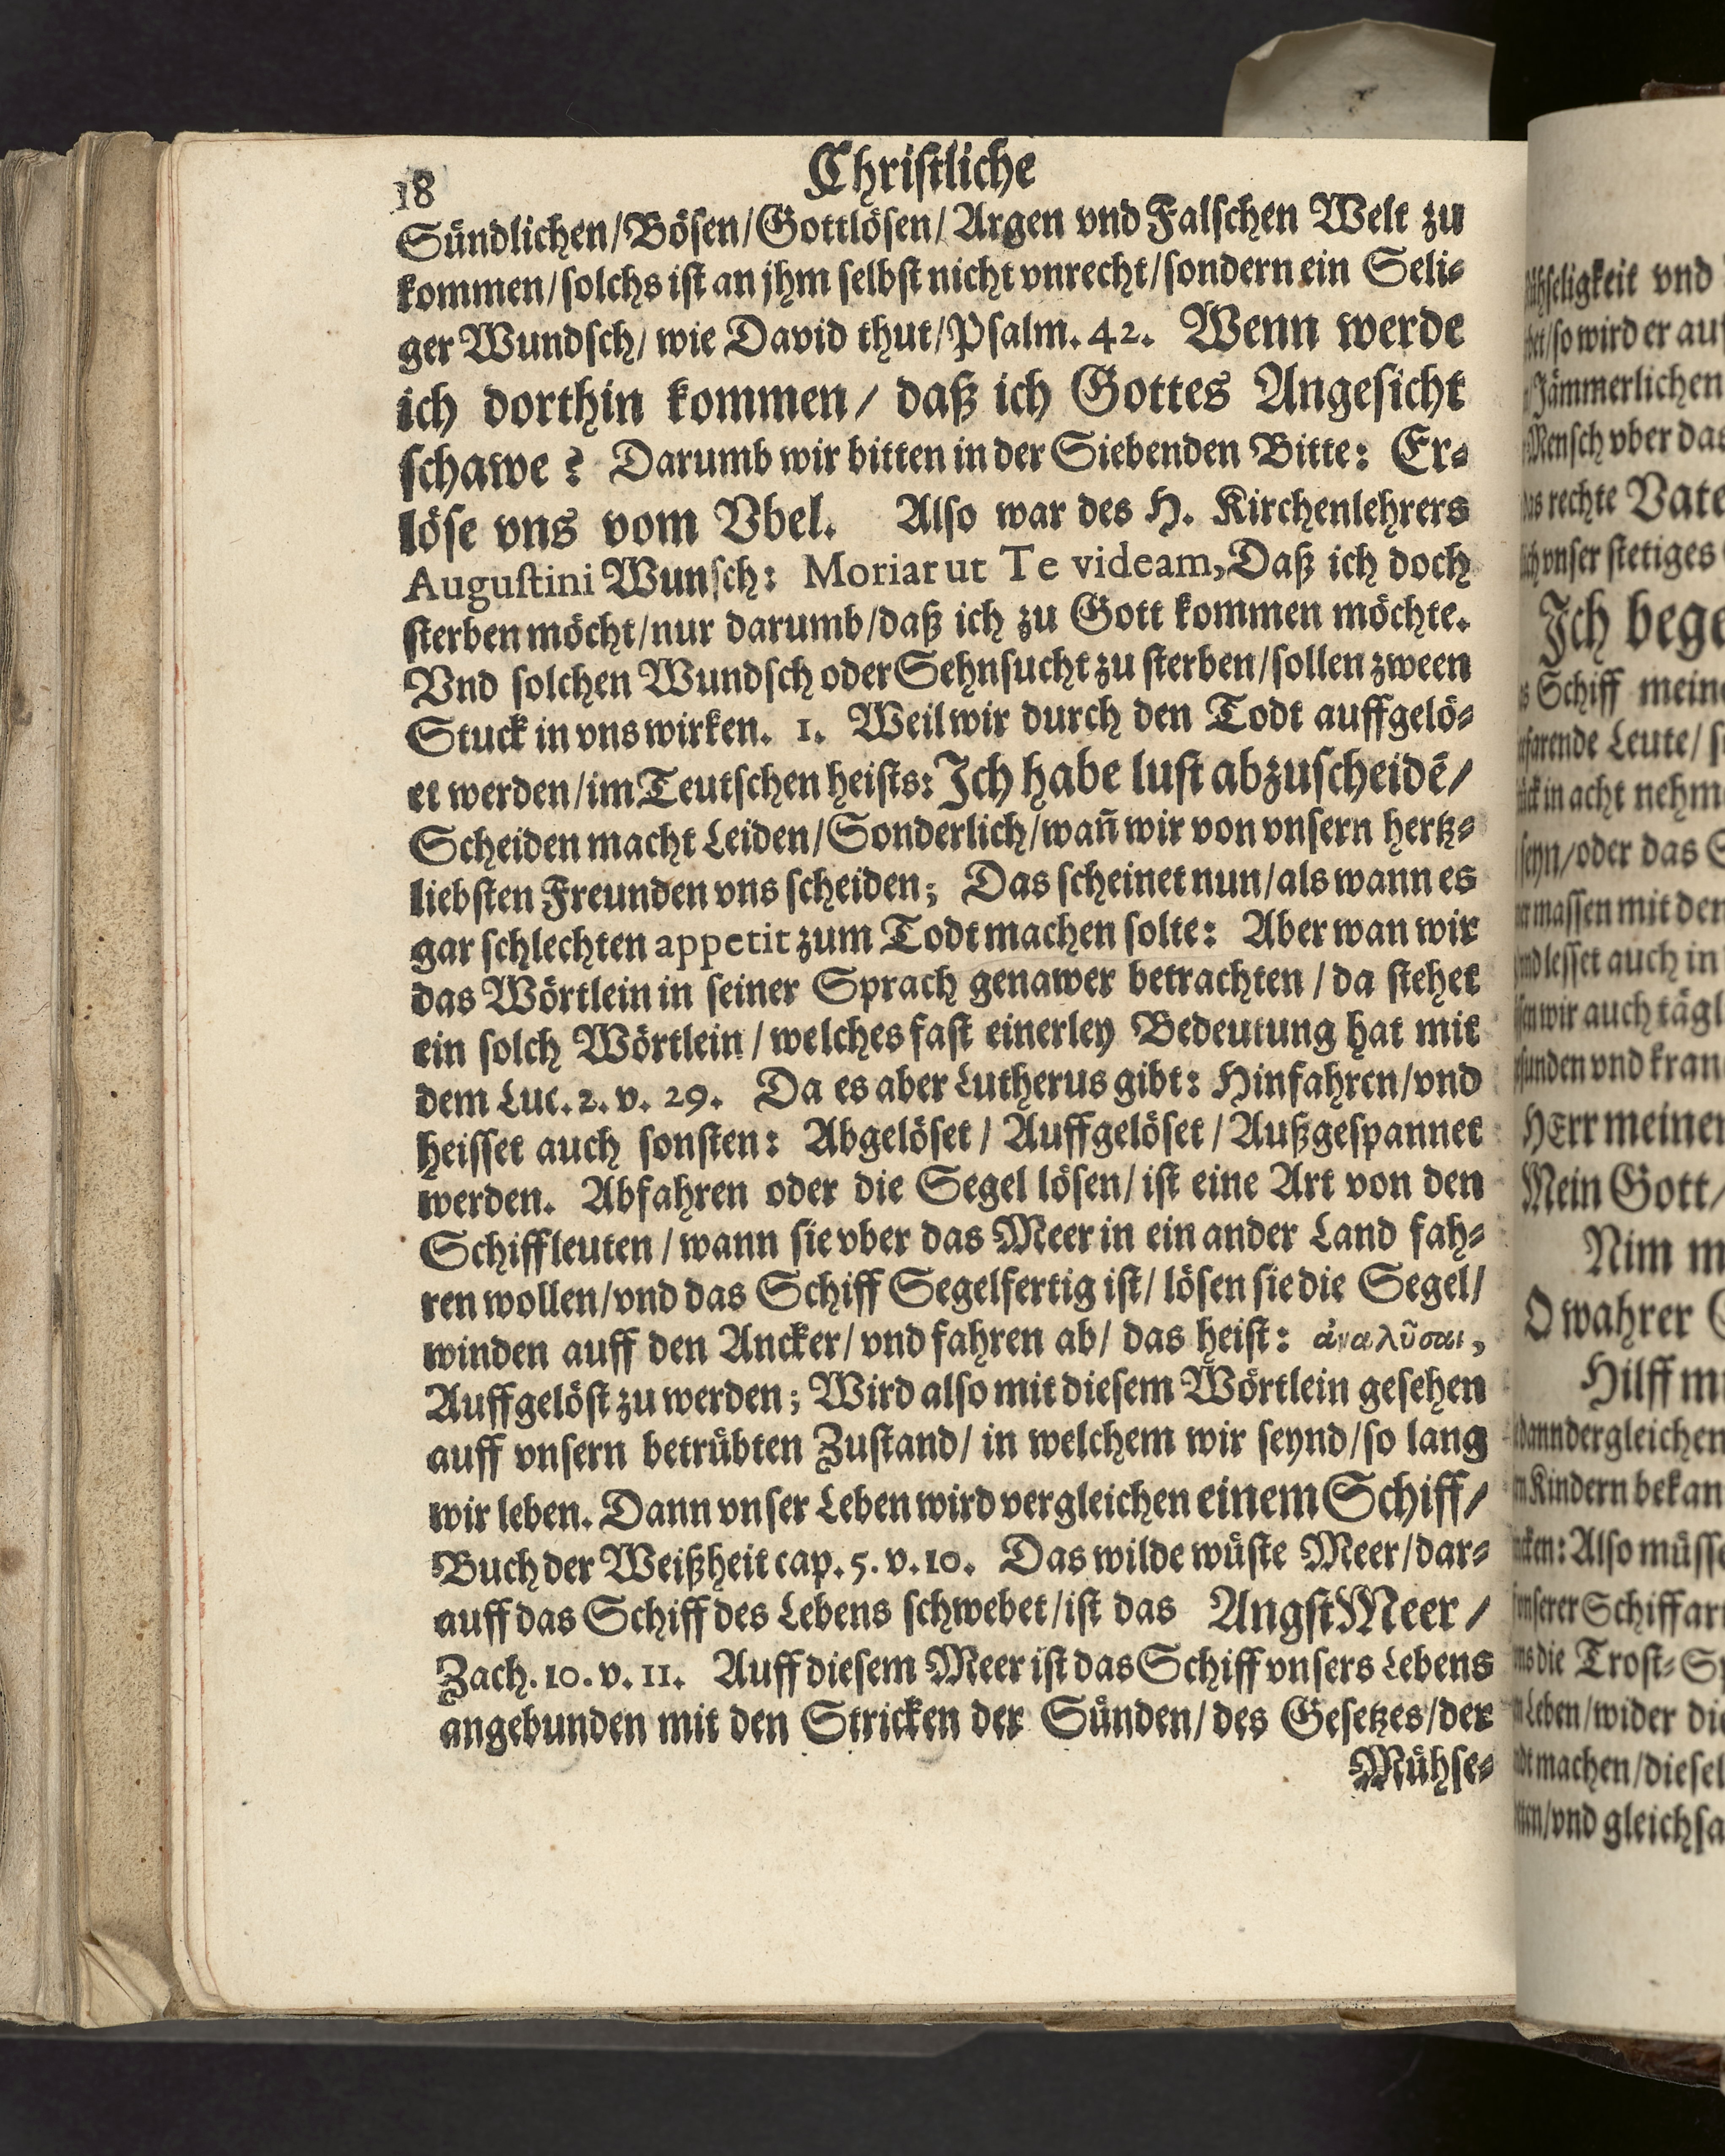 18 Christliche
Sündlichen/Bösen/Gottlösen/Argen vnd Falschen Welt zu
kommen/solchs ist an jhm selbst nicht vnrecht/sondern ein Seli-
ger Wundsch/wie David thut/Psalm. 42. Wenn werde
ich dorthin kommen/ daß ich Gottes Angesicht
schawe? Darumb wir bitten in der Siebenden Bitte: Er-
löse vns vom Vbel. Also war des H. Kirchenlehrers
Augustini Wunsch: Moriar ut Te videam, Daß ich doch
sterben möcht/nur darumb/daß ich zu Gott kommen möchte.
Vnd solchen Wundsch oder Sehnsucht zu sterben/sollen zween
Stuck in vns wirken. 1. Weil wir durch den Todt auffgelö-
et werden/im Teutschen heists: Ich habe lust abzuscheidē/
Scheiden macht Leiden/Sonderlich/wañ wir von vnsern hertz-
liebsten Freunden vns scheiden; Das scheinet nun/als wann es
gar schlechten appetit zum Todt machen solte: Aber wan wir
das Wörtlein in seiner Sprach genawer betrachten/da stehet
ein solch Wörtlein/welches fast einerley Bedeutung hat mit
dem Luc. 2. v. 29. Da es aber Lutherus gibt: Hinfahren/vnd
heisset auch sonsten: Abgelöset/Auffgelöset/Außgespannet
werden. Abfahren oder die Segel lösen/ist eine Art von den
Schiffleuten/wann sie vber das Meer in ein ander Land fah-
ren wollen/vnd das Schiff Segelfertig ist/lösen sie die Segel/
winden auff den Ancker/vnd fahren ab/das heist: ἀναλῦσαι,
Auffgelöst zu werden; Wird also mit diesem Wörtlein gesehen
auff vnsern betrübten Zustand/in welchem wir seynd/so lang
wir leben. Dann vnser Leben wird vergleichen einem Schiff/
Buch der Weißheit cap. 5. v. 10. Das wilde wüste Meer/dar-
auff das Schiff des Lebens schwebet/ist das AngstMeer/
Zach. 10. v. 11. Auff diesem Meer ist das Schiff vnsers Lebens
angebunden mit den Stricken der Sünden/des Gesetzes/der
Mühse-
vnd
so wird er
Jämmerlichen
Mensch vber das
rechte
vnser stetiges
Ich
Schiff
Leute/
in acht
oder das
massen mit
lesset auch in
wir auch
vnd
HErr
Mein Gott/
Nim
O wahrer
Hilff
dann dergleichen
Kindern
Also
die Trost-
Leben/wider
machen/
vnd